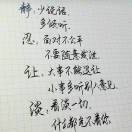 静：少说话
多倾听.
忍：面对不公平
不要随意发泄.
让：大事不能退让
小事多听别人意见
淡：看淡一切.
什么都是不着你.